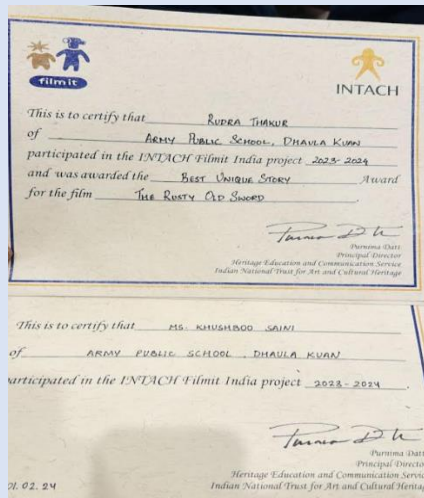 filmit
INTACH
This is to certify that RUDRA THAKUR
of ARMY PUBLIC SCHOOL, DHAULA KUAN
participated in the INTACH Filmit India project 2023-2024
and was awarded the BEST UNIQUE STORY Award
for the film THE RUSTY OLD SWORD
Purnima Datt
Principal Director
Heritage Education and Communication Service
Indian National Trust for Art and Cultural Heritage
This is to certify that MS. KHUSHBOO SAINI
of ARMY PUBLIC SCHOOL, DHAULA KUAN
articipated in the INTACH Filmit India project 2023-2024.
Purnima Datt
Principal Directo
Heritage Education and Communication Servic
01.02.24 Indian National Trust for Art and Cultural Heritag